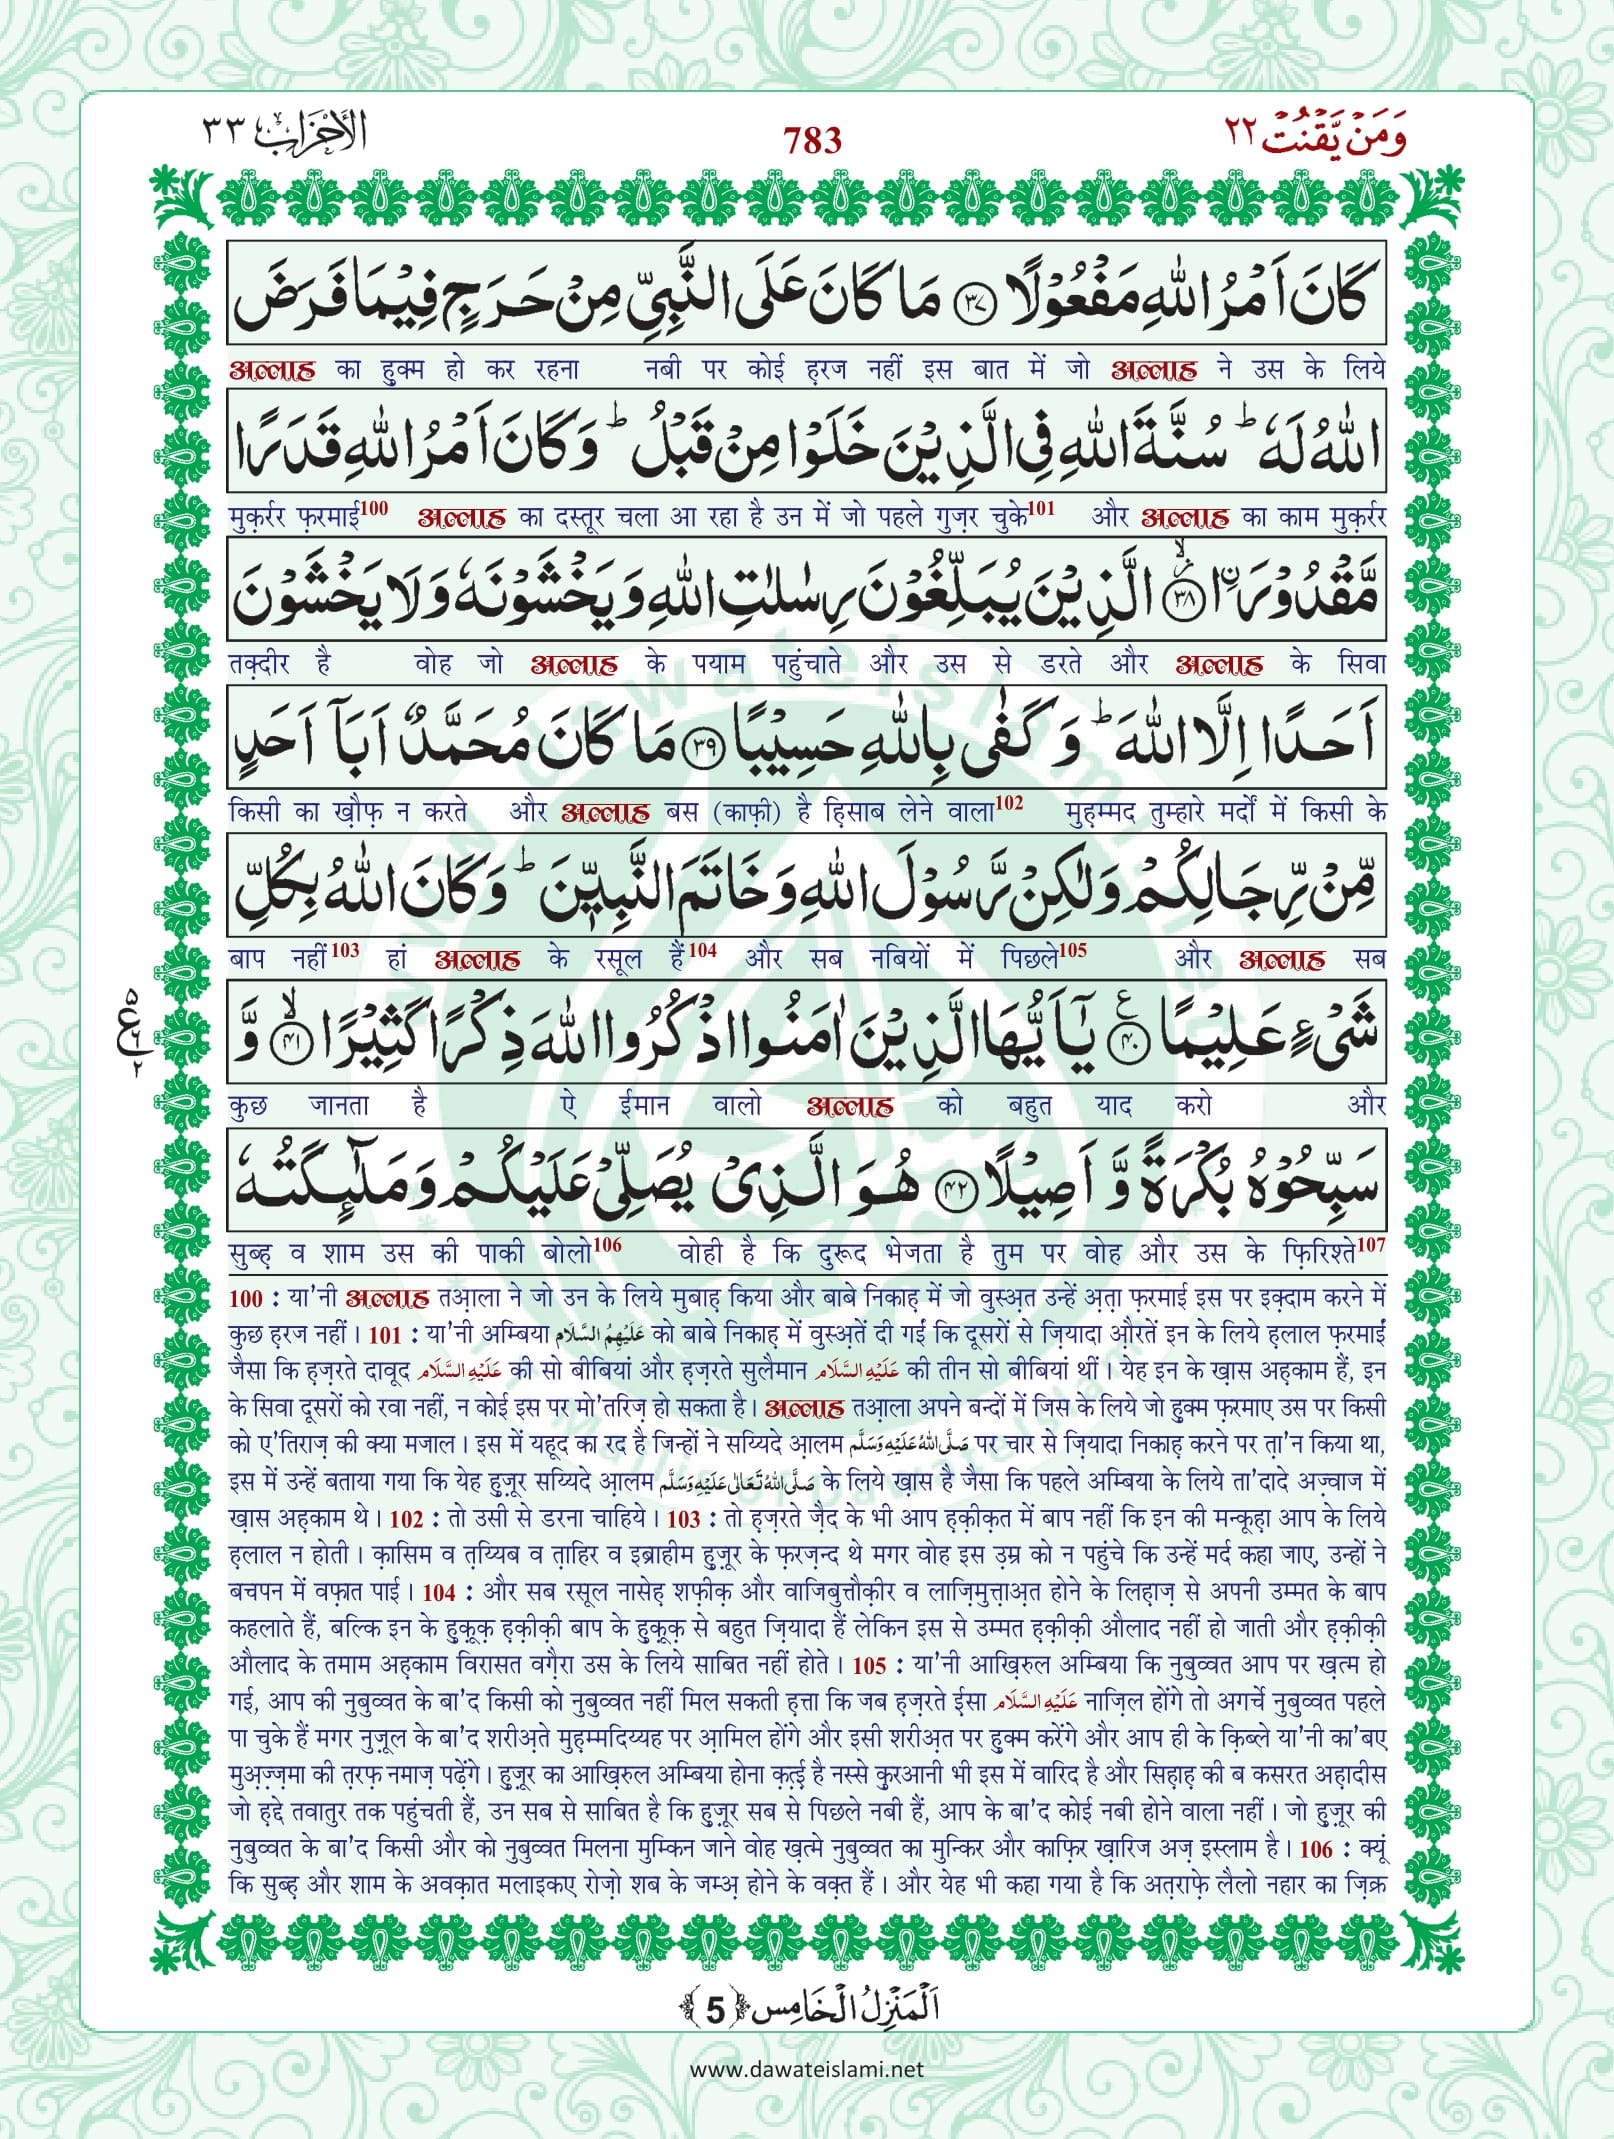 وَمَنْ يَّقْنُتْ ٢٢
783
الْاَحْزَاب ٣٣
كَانَ اَمْرُ اللّٰهِ مَفْعُوْلًا ﴿۳۷﴾ مَا كَانَ عَلَى النَّبِيِّ مِنْ حَرَجٍ فِيْمَا فَرَضَ
अल्लाह का हुक्म हो कर रहना नबी पर कोई ह़रज नहीं इस बात में जो अल्लाह ने उस के लिये
اللّٰهُ لَهٗ ؕ سُنَّةَ اللّٰهِ فِى الَّذِيْنَ خَلَوْا مِنْ قَبْلُ ؕ وَ كَانَ اَمْرُ اللّٰهِ قَدَرًا
मुक़र्रर फ़रमाई100 अल्लाह का दस्तूर चला आ रहा है उन में जो पहले गुज़र चुके101 और अल्लाह का काम मुक़र्रर
مَّقْدُوْرَاۨ ﴿۳۸﴾ الَّذِيْنَ يُبَلِّغُوْنَ رِسٰلٰتِ اللّٰهِ وَ يَخْشَوْنَهٗ وَ لَا يَخْشَوْنَ
तक़्दीर है वोह जो अल्लाह के पयाम पहुंचाते और उस से डरते और अल्लाह के सिवा
اَحَدًا اِلَّا اللّٰهَ ؕ وَ كَفٰى بِاللّٰهِ حَسِيْبًا ﴿۳۹﴾ مَا كَانَ مُحَمَّدٌ اَبَآ اَحَدٍ
किसी का ख़ौफ़ न करते और अल्लाह बस (काफ़ी) है ह़िसाब लेने वाला102 मुह़म्मद तुम्हारे मर्दों में किसी के
مِّنْ رِّجَالِكُمْ وَلٰكِنْ رَّسُوْلَ اللّٰهِ وَ خَاتَمَ النَّبِيّٖنَ ؕ وَ كَانَ اللّٰهُ بِكُلِّ
बाप नहीं103 हां अल्लाह के रसूल हैं104 और सब नबियों में पिछले105 और अल्लाह सब
شَىْءٍ عَلِيْمًا ﴿۴۰﴾ يٰۤاَيُّهَا الَّذِيْنَ اٰمَنُوا اذْكُرُوا اللّٰهَ ذِكْرًا كَثِيْرًا ﴿۴۱﴾ وَّ
ع ٥ ٦ ٢
कुछ जानता है ऐ ईमान वालो अल्लाह को बहुत याद करो और
سَبِّحُوْهُ بُكْرَةً وَّ اَصِيْلًا ﴿۴۲﴾ هُوَ الَّذِىْ يُصَلِّىْ عَلَيْكُمْ وَ مَلٰٓئِكَتُهٗ
सुब्ह़ व शाम उस की पाकी बोलो106 वोही है कि दुरूद भेजता है तुम पर वोह और उस के फ़िरिश्ते107
100 : या'नी अल्लाह तआ़ला ने जो उन के लिये मुबाह़ किया और बाबे निकाह़ में जो वुस्अ़त उन्हें अ़ता फ़रमाई इस पर इक़्दाम करने में
कुछ ह़रज नहीं। 101 : या'नी अम्बिया عَلَيْهِمُ السَّلَام को बाबे निकाह़ में वुस्अ़तें दी गईं कि दूसरों से ज़ियादा औ़रतें इन के लिये ह़लाल फ़रमाईं
जैसा कि ह़ज़रते दावूद عَلَيْهِ السَّلَام की सो बीबियां और ह़ज़रते सुलैमान عَلَيْهِ السَّلَام की तीन सो बीबियां थीं। येह इन के ख़ास अह़काम हैं, इन
के सिवा दूसरों को रवा नहीं, न कोई इस पर मो'तरिज़ हो सकता है। अल्लाह तआ़ला अपने बन्दों में जिस के लिये जो हुक्म फ़रमाए उस पर किसी
को ए'तिराज़ की क्या मजाल। इस में यहूद का रद है जिन्हों ने सय्यिदे आ़लम صَلَّى اللّٰهُ عَلَيْهِ وَسَلَّم पर चार से ज़ियादा निकाह़ करने पर ता़'न किया था,
इस में उन्हें बताया गया कि येह हुज़ूर सय्यिदे आ़लम صَلَّى اللّٰهُ تَعَالٰى عَلَيْهِ وَسَلَّم के लिये ख़ास है जैसा कि पहले अम्बिया के लिये ता'दादे अज़्वाज में
ख़ास अह़काम थे। 102 : तो उसी से डरना चाहिये। 103 : तो ह़ज़रते ज़ैद के भी आप ह़क़ीक़त में बाप नहीं कि इन की मन्कूह़ा आप के लिये
ह़लाल न होती। क़ासिम व त़य्यिब व त़ाहिर व इब्राहीम हुज़ूर के फ़रज़न्द थे मगर वोह इस उ़म्र को न पहुंचे कि उन्हें मर्द कहा जाए, उन्हों ने
बचपन में वफ़ात पाई। 104 : और सब रसूल नासेह़ शफ़ीक़ और वाजिबुत्तौक़ीर व लाज़िमुत्त़ाअ़त होने के लिह़ाज़ से अपनी उम्मत के बाप
कहलाते हैं, बल्कि इन के हुक़ूक़ ह़क़ीक़ी बाप के हुक़ूक़ से बहुत ज़ियादा हैं लेकिन इस से उम्मत ह़क़ीक़ी औलाद नहीं हो जाती और ह़क़ीक़ी
औलाद के तमाम अह़काम विरासत वग़ैरा उस के लिये साबित नहीं होते। 105 : या'नी आख़िरुल अम्बिया कि नुबुव्वत आप पर ख़त्म हो
गई, आप की नुबुव्वत के बा'द किसी को नुबुव्वत नहीं मिल सकती ह़त्ता कि जब ह़ज़रते ई़सा عَلَيْهِ السَّلَام नाज़िल होंगे तो अगर्चे नुबुव्वत पहले
पा चुके हैं मगर नुज़ूल के बा'द शरीअ़ते मुह़म्मदिय्यह पर आ़मिल होंगे और इसी शरीअ़त पर हुक्म करेंगे और आप ही के क़िब्ले या'नी का'बए
मुअ़ज़्ज़मा की त़रफ़ नमाज़ पढ़ेंगे। हुज़ूर का आख़िरुल अम्बिया होना क़त़्ई़ है नस्से क़ुरआनी भी इस में वारिद है और सिह़ाह़ की ब कसरत अह़ादीस
जो ह़द्दे तवातुर तक पहुंचती हैं, उन सब से साबित है कि हुज़ूर सब से पिछले नबी हैं, आप के बा'द कोई नबी होने वाला नहीं। जो हुज़ूर की
नुबुव्वत के बा'द किसी और को नुबुव्वत मिलना मुम्किन जाने वोह ख़त्मे नुबुव्वत का मुन्किर और काफ़िर ख़ारिज अज़ इस्लाम है। 106 : क्यूं
कि सुब्ह़ और शाम के अवक़ात मलाइकए रोज़ो शब के जम्अ़ होने के वक़्त हैं। और येह भी कहा गया है कि अत़राफ़े लैलो नहार का ज़िक्र
اَلْمَنْزِلُ الْخَامِس ﴿5﴾
www.dawateislami.net